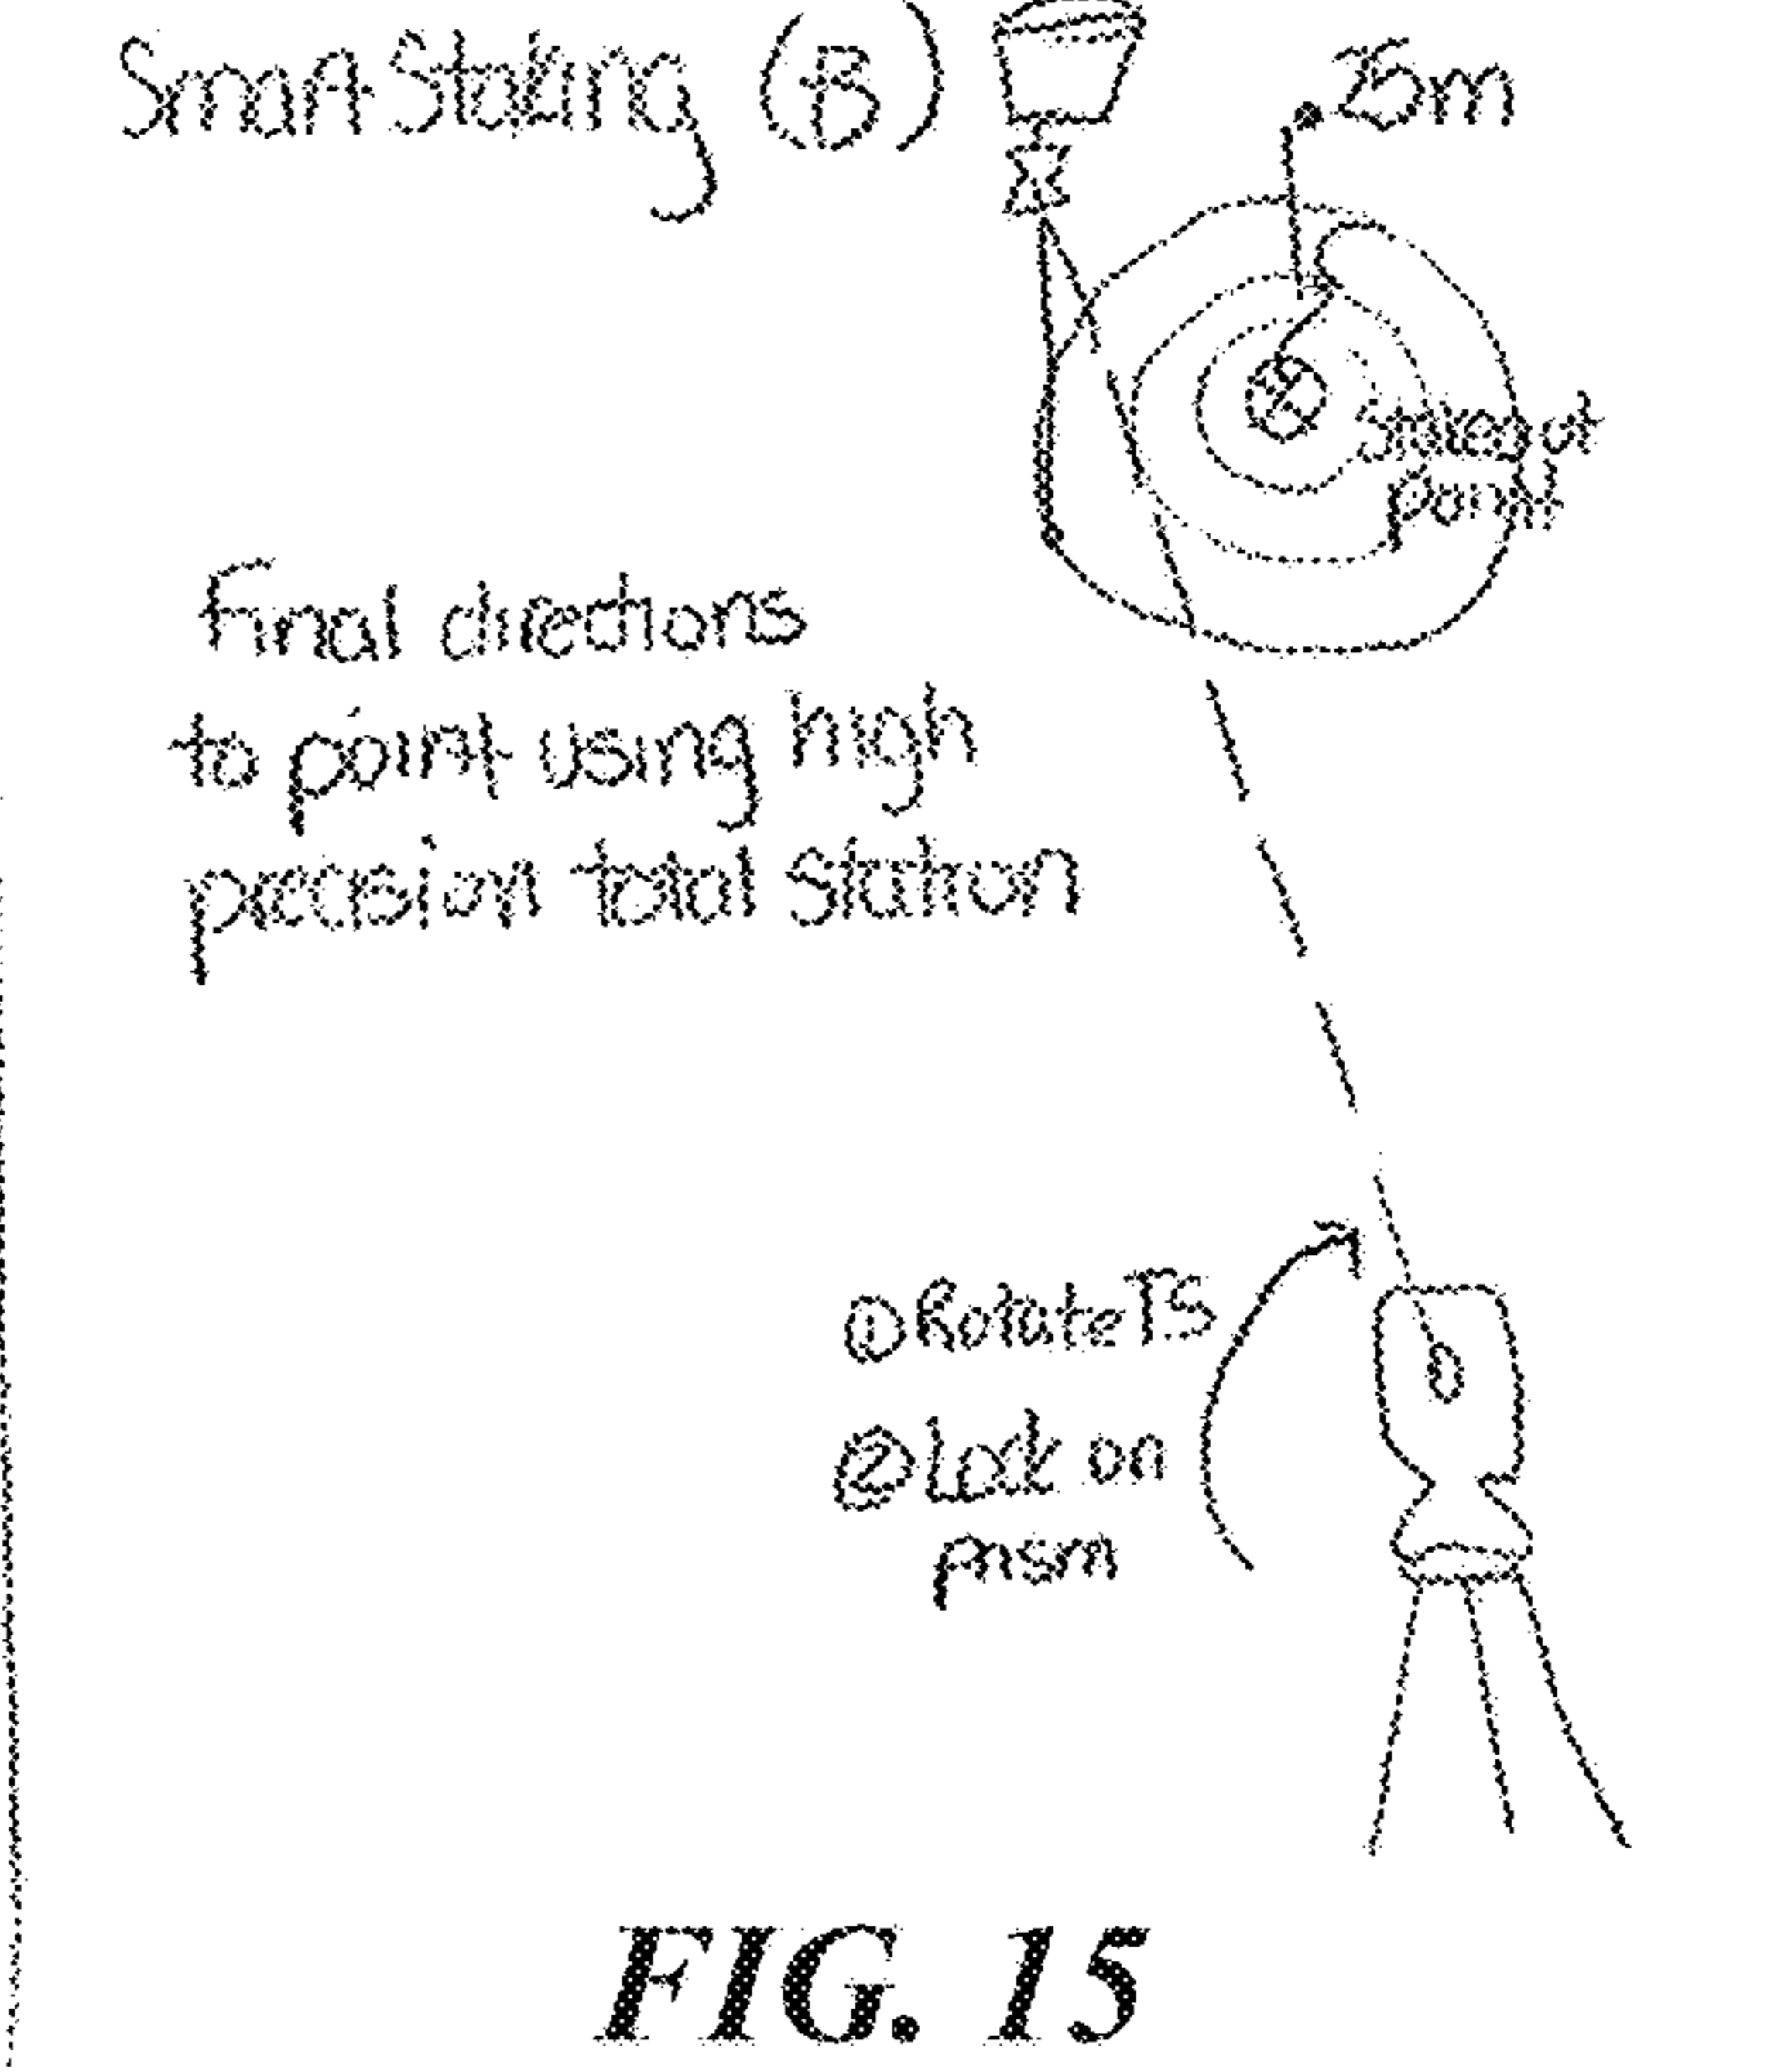 Smart Staking (B)
.25m
Staking out
point
Final directions
to point using high
precision total station
① Rotate TS
② Lock on
prism
FIG. 15